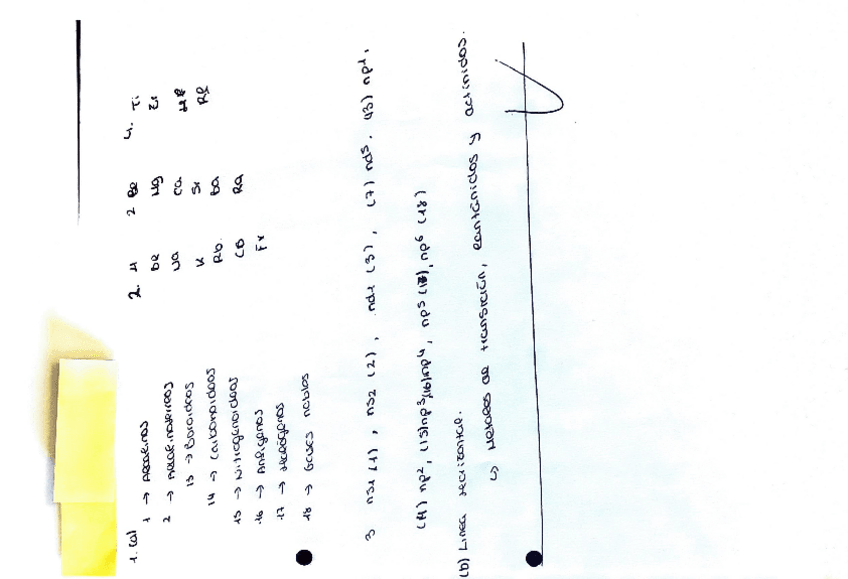 1. (a)
1 → Alcalinos
2 → Alcalinotérreos
13 → Boroideos
14 → Carbonoideos
15 → Nitrogenoideos
16 → Anfígenos
17 → Halógenos
18 → Gases nobles
2. H
Be
Na
K
Rb
Cs
Fr
2 Be
Mg
Ca
Sr
Ba
Ra
4. Ti
Zr
Hf
Rf
3 ns1 (1), ns2 (2), nd1 (3), (7) nd5, (13) np1,
(14) np2, (15) np3, (16) np4, np5 (17), np6 (18)
(b) Línea horizontal.
↳ Metales de transición, lantánidos y actínidos.